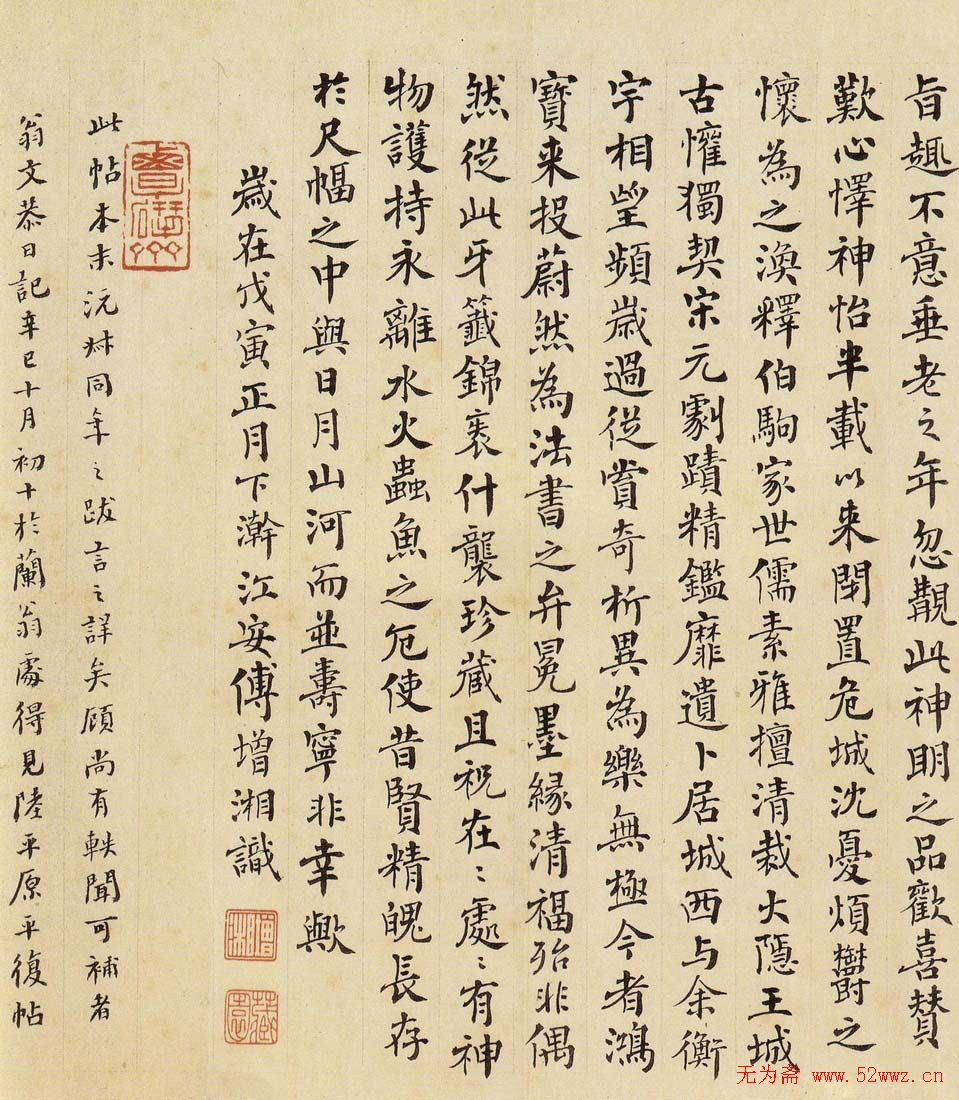 旨趣不意垂老之年忽覩此神明之品歡喜贊
歎心懌神怡半載以来閉置危城沈憂煩欝之
懷為之渙釋伯駒家世儒素雅擅清裁大隱王城
古懽獨契宋元劇蹟精鑑靡遺卜居城西与余衡
宇相望頻歲過從賞奇析異為樂無極今者鴻
寶来投蔚然為法書之弁冕墨縁清福殆非偶
然從此牙籤錦裹什襲珍藏且祝在〻處〻有神
物護持永離水火蟲魚之厄使昔賢精魄長存
於尺幅之中與日月山河而並壽寧非幸歟
歲在戊寅正月下澣江安傅增湘識
增湘
藏園
此帖本末沅叔同年之跋言之詳矣顧尚有軼聞可補者
翁文恭日記辛巳十月初十於蘭翁處得見陸平原平復帖
无为斋 www.52wwz.cn